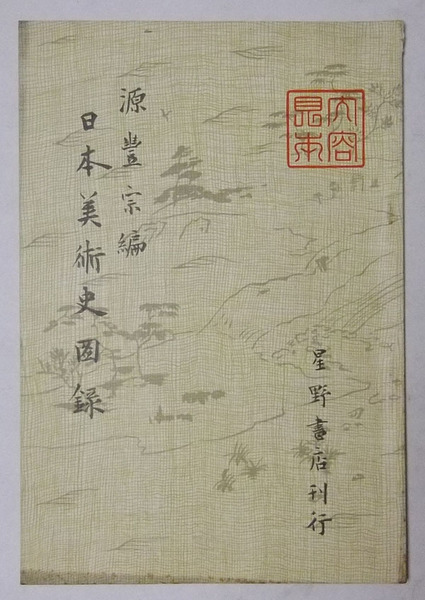 内容
見本
星野書店刊行
源豊宗編
日本美術史図録